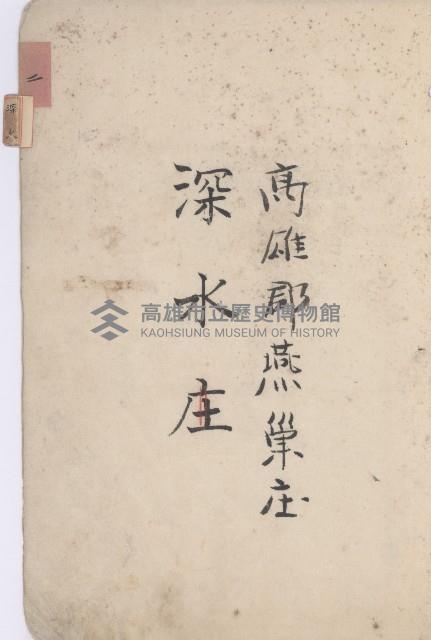 二
深水
高雄郡燕巢庄
深水庄
高雄市立歷史博物館
KAOHSIUNG MUSEUM OF HISTORY